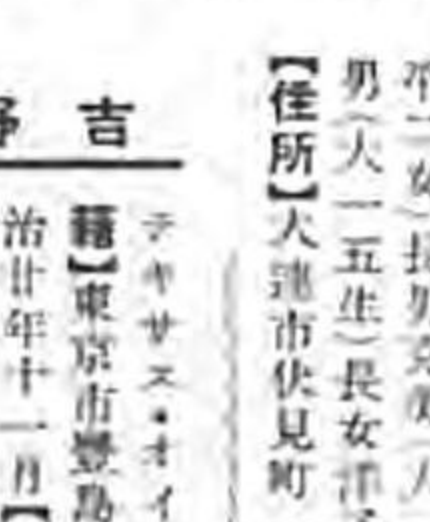 男(大一五生)長女洋
【住所】大連市伏見町
吉野
テキサス・オイ
籍】東京市豐島
治廿年十一月【